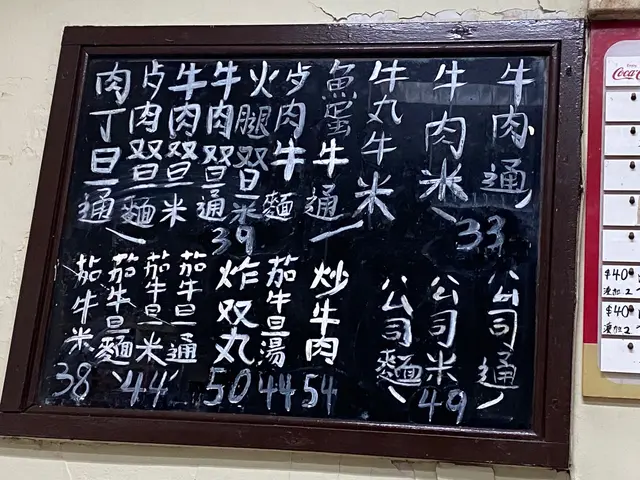 牛肉通
牛肉米
33
牛丸牛米
魚蛋牛通
卢肉牛麵
火腿双旦米
牛肉双旦通
39
牛肉双旦米
卢肉双旦麵
肉丁旦通
公司通
公司米
公司麵
49
炒牛肉
54
茄牛旦湯
44
炸双丸
50
茄牛旦通
茄牛旦米
茄牛旦麵
44
茄牛米
38
Coca-C
$40
$40